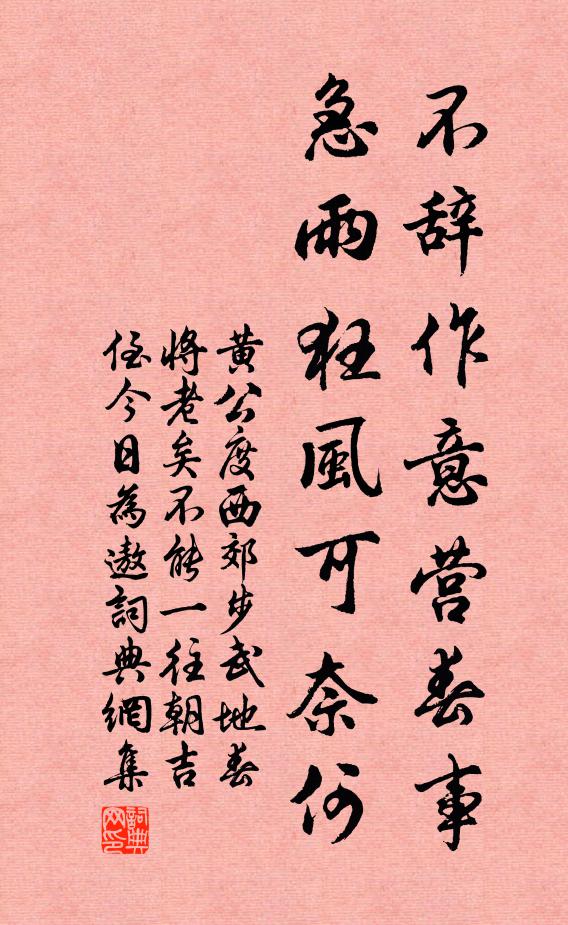 不辞作意营春事
急雨狂風可奈何
黄公度西郊步武地春
將老矣不能一往朝吉
侄今日為遨詞典網集
詞典
网印